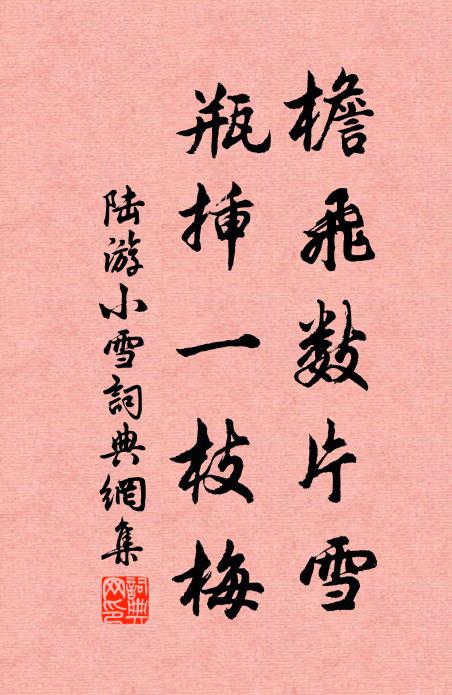 檐飛數片雪
瓶插一枝梅
陆游小雪詞典網集
詞典
网印